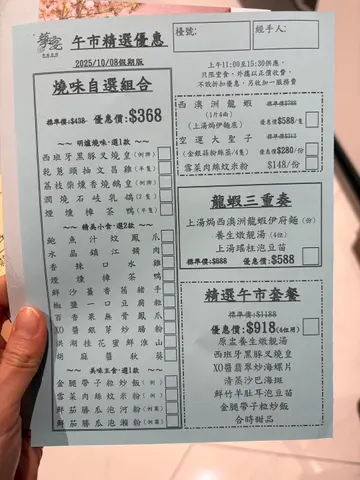 午市精選優惠
2025/10/08假期版
檯號:
經手人:
上午11:00至15:30供應,
只限堂食,外賣以正價收費,
不設折扣優惠,另收加一服務費
燒味自選組合
標準價:$438 優惠價:$368
~~ 明爐燒味,選1款 ~~
西班牙黑豚叉燒皇(例牌)
乾蔥頭抽文昌雞(半隻)
荔枝柴燻香燒鵝(例牌)
潤燒石岐乳鴿(隻)
煙燻樟茶鴨(半隻)
~~ 精美小食,選2款 ~~
鮑魚汁炆鳳爪
水晶鎮江餚肉
香辣口水雞
煙燻樟茶鴨
鮮沙薑香菇豬手
椒鹽一口豆腐粒
百香果無骨鳳爪
XO醬銀芽炒腸粉
洪湖桂花蜜鮮淮山
胡麻醬秋葵
~~ 美味主食,選1款 ~~
金腿帶子粒炒飯(例)
雪菜肉絲炆米粉(例)
鮮茄勝瓜泡河粉(例)
鮮茄勝瓜泡瀨粉(例)
西澳洲龍蝦 標準價:$788
(1斤4両) 優惠價$588/隻
(上湯焗伊麵底)
空運大聖子 標準價:$313
(金銀蒜粉絲蒸/4隻) 優惠價$280/份
雪菜肉絲炆米粉 $148/份
龍蝦三重奏
上湯焗西澳洲龍蝦伊府麵(份)
養生燉靚湯(4位)
上湯瑤柱泡豆苗
標準價:$888 優惠價:$588
精選午市套餐
標準價:$1188
優惠價:$918(4位用)
原盅養生燉靚湯
西班牙黑豚叉燒皇
XO醬翡翠炒海螺片
清蒸沙巴海斑
鮮竹羊肚耳泡豆苗
金腿帶子粒炒飯
合時甜品